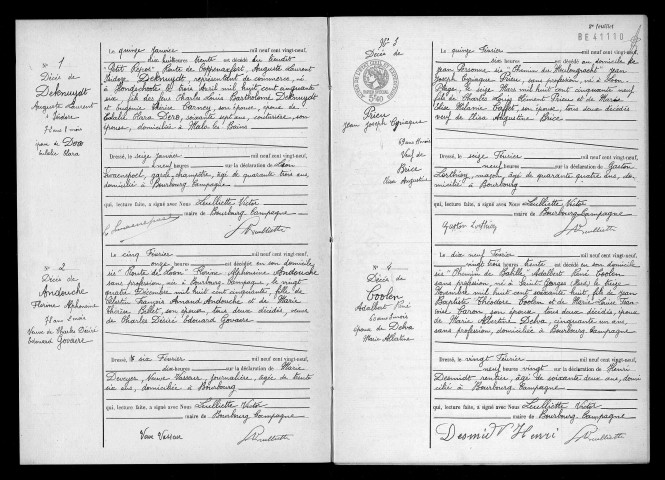 N° 1
Décès de
Deknuydt
Auguste Laurent
Isidore
72 ans 8 mois
époux de Dero
Eulalie Clara
Le quinze Janvier mil neuf cent vingt-neuf,
dix huit heures trente est décédé au lieudit
"Petit Repos" Route de Coppenaxfort, Auguste Laurent
Isidore Deknuydt, représentant de commerce, né
à Hondschoote le trois Avril mil huit cent cinquante
six, fils de feu Charles Louis Barthelemi Deknuydt
et Eugénie Thérèse, son épouse, époux de
Clara Dero, soixante sept ans, couturière, son
épouse, domicilié à Malo les Bains
Dressé, le seize Janvier mil neuf cent vingt-neuf,
neuf heures sur la déclaration de Léon
garde champêtre, âgé de quarante trois ans
domicilié à Bourbourg Campagne
qui, lecture faite, a signé avec Nous Lulliette Victor
maire de Bourbourg Campagne
N° 2
Décès de
Andouche
Florine Alphonsine
78 ans 2 mois
Veuve de Charles Désiré
Edouard Govaere
Le cinq Février mil neuf cent vingt-neuf,
onze heures est décédée en son domicile
sis "Route de Loon" Florine Alphonsine Andouche
sans profession, née à Bourbourg Campagne, le vingt
quatre Décembre mil huit cent cinquante, fille de
Martin François Armand Andouche et de Marie
Thérèse Bellet, son épouse, tous deux décédés, veuve
de Charles Désiré Edouard Govaere
Dressé, le six Février mil neuf cent vingt-neuf,
dix heures sur la déclaration de Marie
Deveyer, Veuve Vasseur, journalière, âgée de trente
six ans, domiciliée à Bourbourg
qui, lecture faite, a signé avec Nous Lulliette Victor
maire de Bourbourg Campagne
Veuve Vasseur
Vlulliette
2e feuillet
BE 41110
N° 3
Décès de
Prieu
Jean Joseph Cyriaque
69 ans 11 mois
Veuf de
Brice
Elisa Augustine
Le quinze Février mil neuf cent vingt-neuf,
heures est décédé au domicile de
Jean Personne sis "Chemin du" Jean
Joseph Cyriaque Prieu, sans profession, né à Loon
Plage, le seize Mars mil huit cent cinquante neuf
fils de Charles Louis Clément Prieu et de Marie
Elisa Mélanie, son épouse, tous deux décédés
veuf de Elisa Augustine Brice
Dressé, le seize Février mil neuf cent vingt-neuf,
neuf heures sur la déclaration de Gaston
Lothioy, maçon, âgé de quarante quatre ans, do-
micilié à Bourbourg
qui, lecture faite, a signé avec Nous Lulliette Victor
maire de Bourbourg-Campagne
Gaston Lothioy
Vlulliette
N° 4
Décès de
Coolen
Adalbert René
60 ans 3 mois
époux de Delva
Marie Albertine
Le dix neuf Février mil neuf cent vingt-neuf,
vingt trois heures trente est décédé en son domicile
sis "Chemin de" Adalbert René Coolen
sans profession, né à Saint Georges (Nord) le treize
Novembre mil huit cent soixante huit, fils de Jean
Baptiste Théodore Coolen et de Marie-Louise Fran-
çoise Caron, son épouse, tous deux décédés, époux
de Marie Albertine Delva, cinquante un ans,
sans profession, domiciliée à Bourbourg Campagne
Dressé, le vingt Février mil neuf cent vingt-neuf,
neuf heures vingt sur la déclaration de Henri
Desmidt rentier, âgé de soixante deux ans, domi-
cilié à Bourbourg Campagne
qui, lecture faite, a signé avec Nous Lulliette Victor
maire de Bourbourg-Campagne
Desmidt Henri
Vlulliette